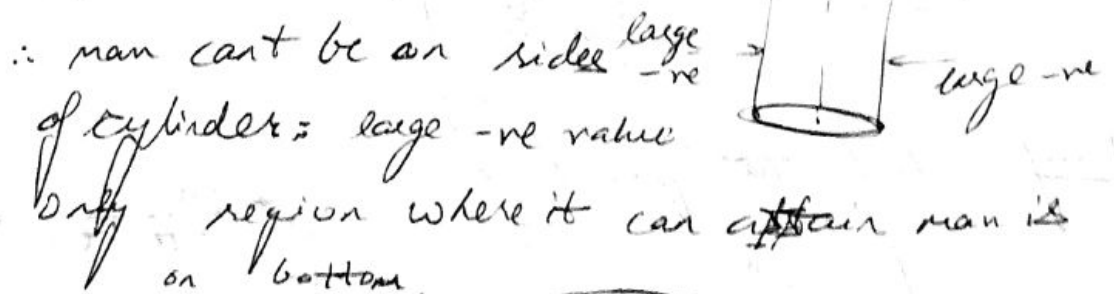 ∴ max can't be on sides large -ve
large -ve
of cylinder : large -ve value
Only region where it can attain max is
on bottom